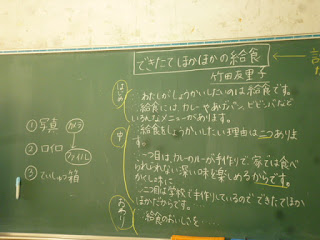 できたてほかほかの給食
竹田友里子
はじめ
・わたしがしょうかいしたいのは給食です。
・給食には、カレーやあげパン、ビビンバなど
いろんなメニューがあります。
中
・給食をしょうかいしたい理由は二つありま
す。
・一つ目は、カレーのルーが手作りで、家では食べ
られられない深い味を楽しめるからです。
かくしあじに
・二つ目は学校で手作りしているので、できたてほか
ほかだからです。…
おわり
・給食のおいしさを…
①写真
カメラ
②ロイロ
ファイル
③ていしゅつ箱